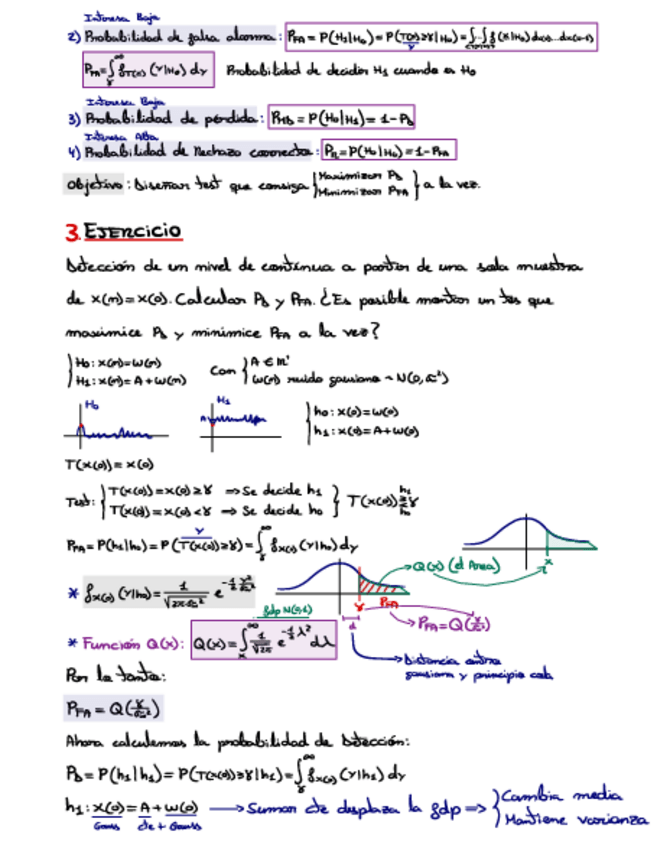 Interesa Baja
2) Probabilidad de falsa alarma: P_FA = P(H₁|H₀) = P(T(x)≥γ|H₀) = ∫...∫ f(x|H₀) dx(0)...dx(N-1)
P_FA = ∫_γ^∞ f_T(x)(γ|H₀) dγ Probabilidad de decidir H₁ cuando es H₀
Interesa Baja
3) Probabilidad de pérdida: P_MD = P(H₀|H₁) = 1-P_D
Interesa Alta
4) Probabilidad de Rechazo correcto: P_R = P(H₀|H₀) = 1-P_FA
Objetivo: Diseñar test que consiga { Maximizar P_D / Minimizar P_FA } a la vez.
3. EJERCICIO
Detección de un nivel de contínua a partir de una sola muestra
de x(n)=x(0). Calcular P_D y P_FA. ¿Es posible montar un tes que
maximice P_D y minimice P_FA a la vez?
H₀: x(n)=w(n)
H₁: x(n)=A+w(n)
Con { A ∈
w(n) ruido gausiano ~ N(0,σ²)
H₀
H₁
A
h₀: x(0)=w(0)
h₁: x(0)=A+w(0)
T(x(0)) = x(0)
Test: { T(x(0))=x(0)≥γ ⇒ Se decide h₁
T(x(0))=x(0)<γ ⇒ Se decide h₀ } T(x(0)) ≷ γ h₁ h₀
P_FA = P(h₁|h₀) = P(T(x(0))≥γ) = ∫_γ^∞ f_x(0)(γ|h₀) dγ
Q(x) (el Area)
x
* f_x(0)(γ|h₀) = 1/√(2πσ²) e^(-½ γ²/σ²)
γ P_FA
d
P_FA = Q(γ/σ)
fdp N(0,1)
* Función Q(x): Q(x) = ∫_x^∞ 1/√(2π) e^(-½λ²) dλ
Distancia entre
gausiana y principio cola
Por lo tanto:
P_FA = Q(γ/√σ²)
Ahora calculemos la probabilidad de Detección:
P_D = P(h₁|h₁) = P(T(x(0))≥γ|h₁) = ∫_γ^∞ f_x(0)(γ|h₁) dγ
h₁: x(0) = A + w(0) → Sumar cte desplaza la fdp ⇒ { Cambia media
Gauss cte + Gauss Mantiene varianza